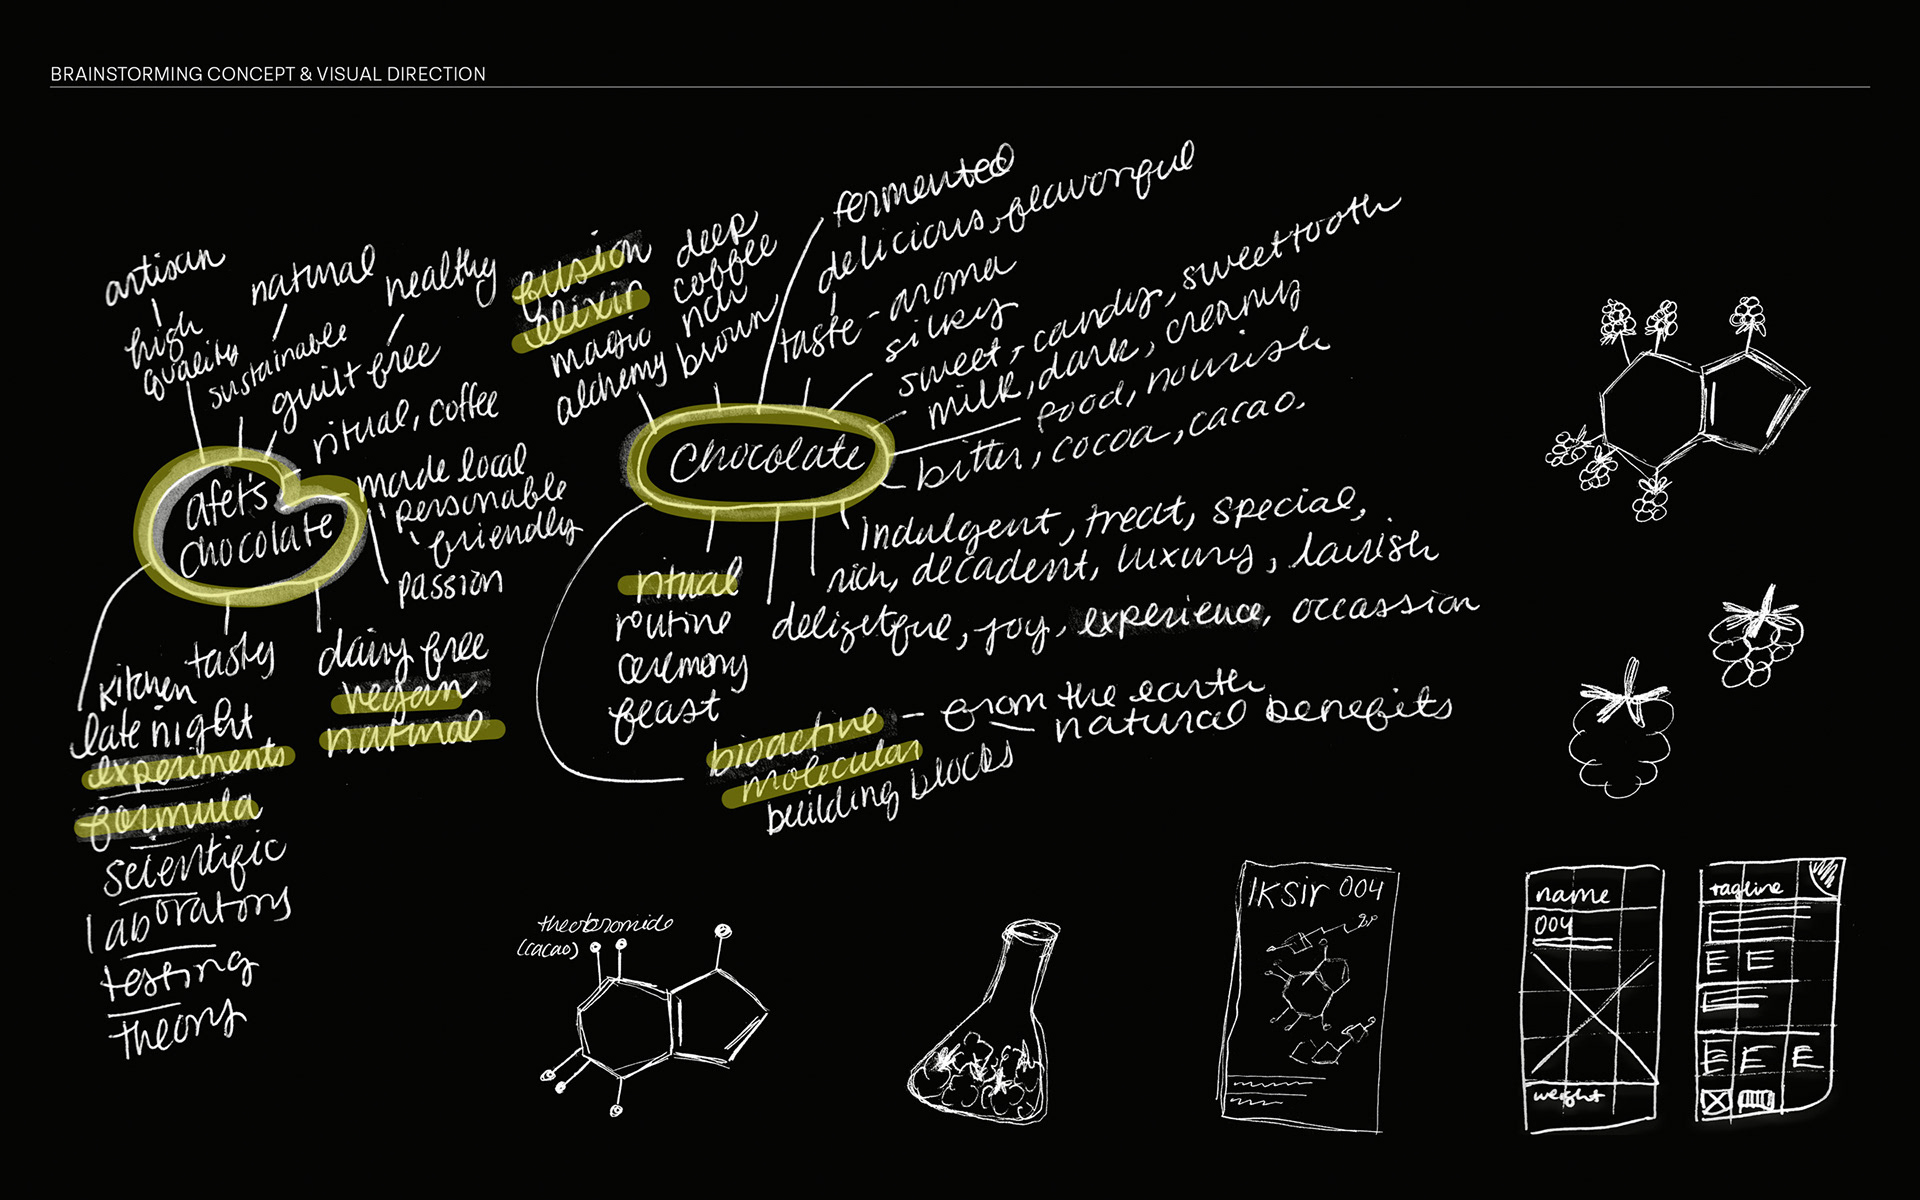 BRAINSTORMING CONCEPT & VISUAL DIRECTION
artisan
high
quality
natural
sustainable
healthy
guilt free
ritual, coffee
made local
personable
friendly
passion
afet's
chocolate
kitchen
late night
experiments
formula
scientific
laboratory
testing
theory
tasty
dairy free
vegan
natural
fusion
elixir
magic
alchemy
deep
coffee
rich
brown
fermented
delicious, flavorful
taste - aroma
silky
sweet, candy, sweettooth
milk, dark, creamy
food, nourish
bitter, cocoa, cacao.
chocolate
indulgent, treat, special,
rich, decadent, luxury, lavish
delightful, joy, experience, occassion
ritual
routine
ceremony
feast
bioactive - from the earth
molecular
building blocks
natural benefits
theobromide
(cacao)
IKSir 004
name
004
weight
tagline